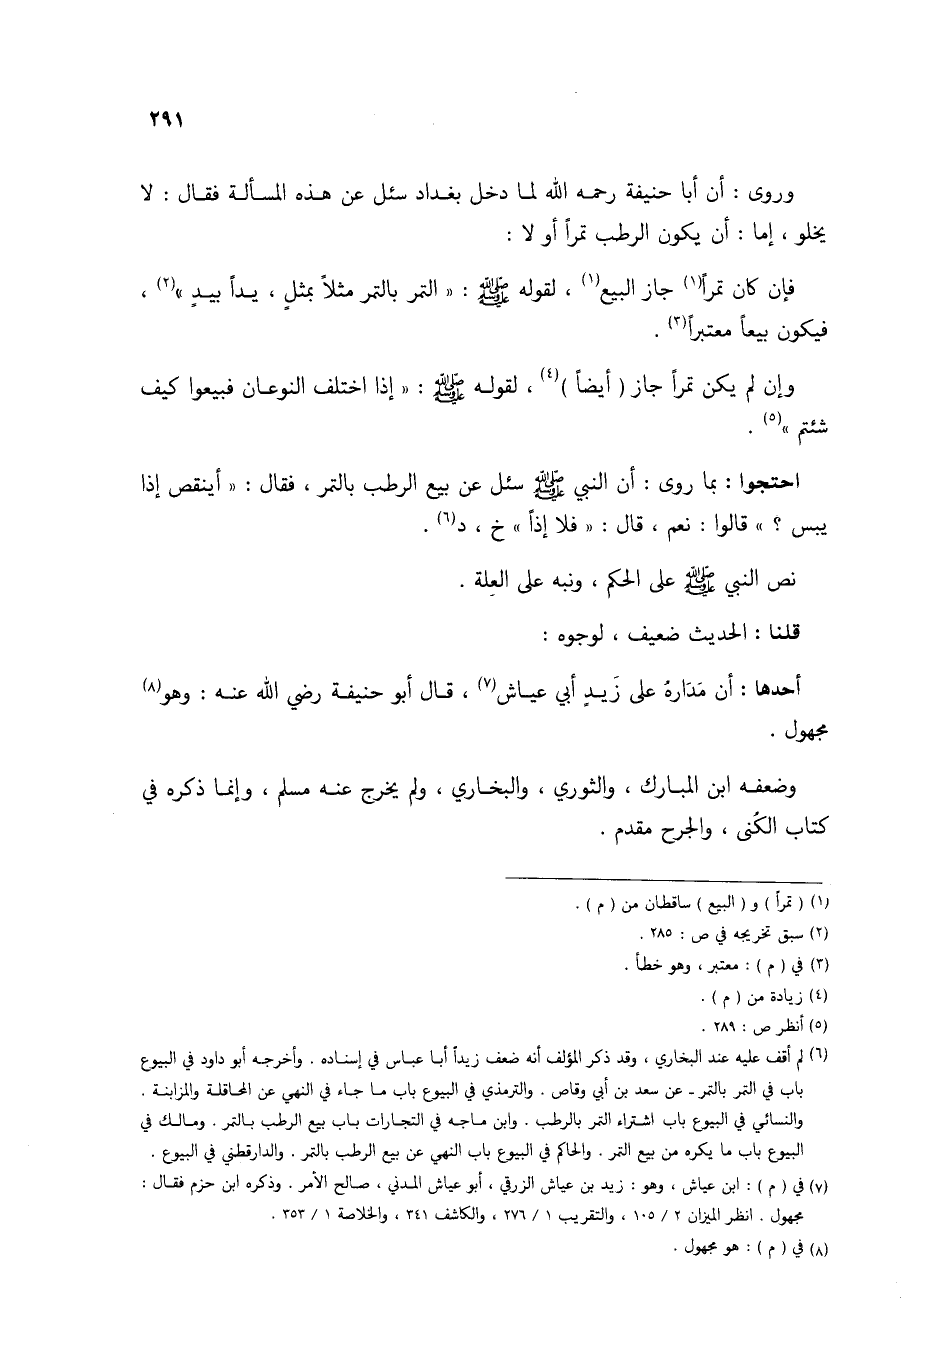 ٢٩١
وروى : أن أبا حنيفة رحمه الله لما دخل بغداد سئل عن هذه المسألة فقال : لا
يخلو ، إما : أن يكون الرطب تمراً أو لا :
فإن كان تمراً(١) جاز البيع(١) ، لقوله ﷺ : « التمر بالتمر مثلاً بمثلٍ ، يداً بيدٍ »(٢) ،
فيكون بيعاً معتبراً(٣) .
وإن لم يكن تمراً جاز ( أيضاً )(٤) ، لقوله ﷺ : « إذا اختلف النوعان فبيعوا كيف
شئتم »(٥) .
احتجوا : بما روى : أن النبي ﷺ سئل عن بيع الرطب بالتمر ، فقال : « أينقص إذا
يبس ؟ » قالوا : نعم ، قال : « فلا إذاً » خ ، د(٦) .
نص النبي ﷺ على الحكم ، ونبه على العِلة .
قلنا : الحديث ضعيف ، لوجوه :
أحدها : أن مَدَارهُ على زَيدٍ أبي عياش(٧) ، قال أبو حنيفة رضي الله عنه : وهو(٨)
مجهول .
وضعفه ابن المبارك ، والثوري ، والبخاري ، ولم يخرج عنه مسلم ، وإنما ذكره في
كتاب الكُنى ، والجرح مقدم .
(١) ( تمراً ) و ( البيع ) ساقطان من ( م ) .
(٢) سبق تخريجه في ص : ٢٨٥ .
(٣) في ( م ) : معتبر ، وهو خطأ .
(٤) زيادة من ( م ) .
(٥) أنظر ص : ٢٨٩ .
(٦) لم أقف عليه عند البخاري ، وقد ذكر المؤلف أنه ضعف زيداً أبا عباس في إسناده . وأخرجه أبو داود في البيوع
باب في التمر بالتمر ـ عن سعد بن أبي وقاص . والترمذي في البيوع باب ما جاء في النهي عن المحاقلة والمزابنة .
والنسائي في البيوع باب اشتراء التمر بالرطب . وابن ماجه في التجارات باب بيع الرطب بالتمر . ومالك في
البيوع باب ما يكره من بيع التمر . والحاكم في البيوع باب النهي عن بيع الرطب بالتمر . والدارقطني في البيوع .
(٧) في ( م ) : ابن عياش ، وهو : زيد بن عياش الزرقي ، أبو عياش المدني ، صالح الأمر . وذكره ابن حزم فقال :
مجهول . انظر الميزان ٢ / ١٠٥ ، والتقريب ١ / ٢٧٦ ، والكاشف ٣٤١ ، والخلاصة ١ / ٣٥٣ .
(٨) في ( م ) : هو مجهول .